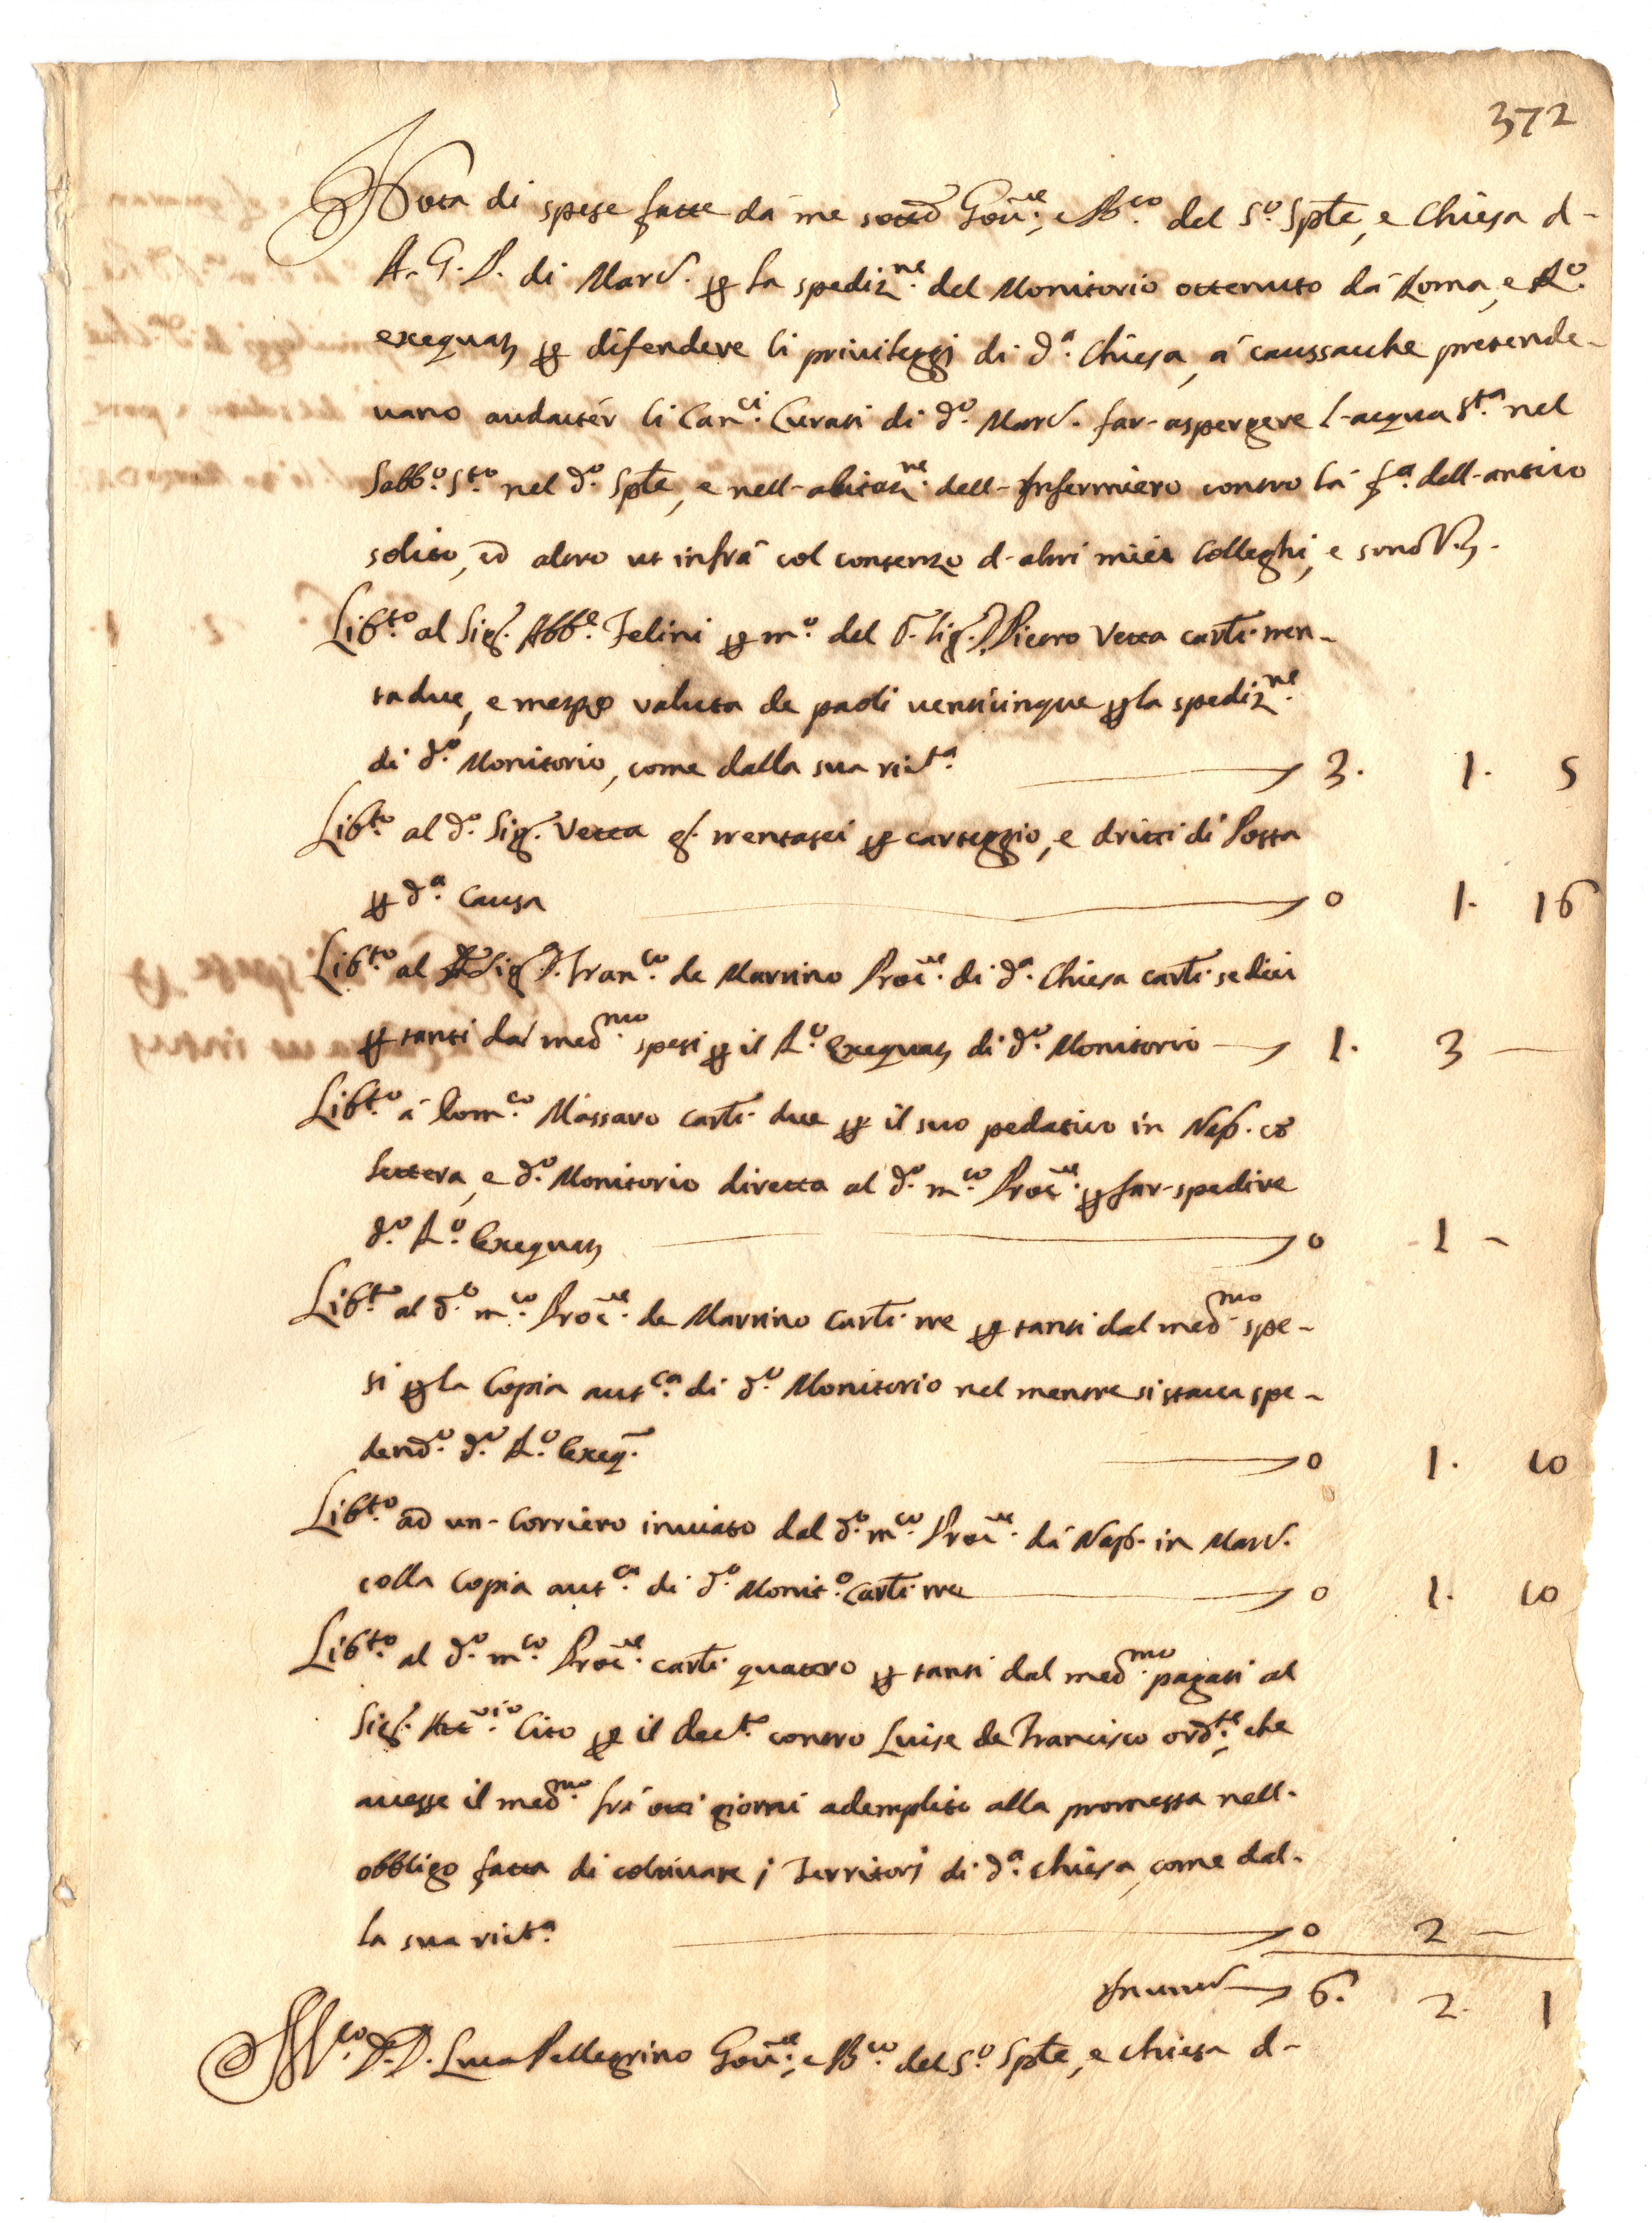 372
Nota di spese fatte dà me sottõ Gov̄.re, e Bo.co del S.o Spt̃e, e Chiesa d-
A. G. P. di Mard. ꝑ la spediz.ne del Monitorio ottenuto dà Roma, e R.o
exequatȝ ꝑ difendere li privileggj di d.a Chiesa, à caussacche pretende-
vano audactèr li Can.ci Curati di d.o Mard. far-aspergere l-acqua S.ta nel
Sabb.o S.to nel d.o Spt̃e, e nell-abitaz.ne dell-Infermiero contro là f.a dell-antico
solito, ed altro ut infrà col consenzo d-altri miei Colleghi, e sono Vȝ.
Lib.to al Sig.r Abb.e Felini ꝑ m.o del Sig.r D. Pietro Vecca carl̃i tren-
tadue, e mezzo valuta de paoli venticinque ꝑ la spediz.ne
di d.o Monitorio, come dalla sua ric.ta 3. 1. 5
Lib.to al d.o Sig.r Vecca g.a trentasei ꝑ carteggio, e dritti di Posta
ꝑ d.a Causa 0 1. 16
Lib.to al Sig.r D. Fran.co de Martino Proc̄.re di d.a Chiesa carl̃i sedici
ꝑ tanti dal med.mo spesi ꝑ il R.o Exequatȝ di d.o Monitorio 1. 3 —
Lib.to à Dom.co Massaro carl̃i due ꝑ il suo pedatico in Nap. cõ
lettera, e d.o Monitorio diretta al d.o m.co Proc̄.re ꝑ far-spedire
d.o R.o Exequatȝ 0 1 -
Lib.to al d.o m.co Proc̄.re de Martino carl̃i tre ꝑ tanti dal med.mo spe-
si ꝑ la Copia aut.ca di d.o Monitorio nel mentre si stava spe-
dend.o d.o R.o Exeq̃. 0 1. 10
Lib.to ad un-Corriero inviato dal d.o m.co Proc̄.re dà Nap. in Mard.
colla Copia aut.ca di d.o Monit.o carl̃i tre 0 1. 10
Lib.to al d.o m.co Proc̄.re carl̃i quattro ꝑ tanti dal med.mo pagati al
Sig.r Cito ꝑ il dec.to contro Luise de Francisco ord.te, che
avesse il med.mo frà otti giorni adempliti alla promessa nell-
obbligo fatta di coltivare i Territorj di d.a chiesa, come dal-
la sua ric.ta 0 2 —
6. 2. 1
M.co D. Luca Pellegrino Gov̄.re, e Bo.co del S.o Spt̃e, e chiesa d-